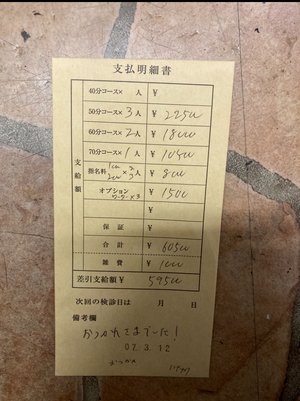 支払明細書
40分コース× 人 ¥
50分コース× 3人 ¥ 22500
60分コース× 2人 ¥ 18000
70分コース× 1人 ¥ 10500
支給額
指名料 1000 2000 × 2 3 人 ¥ 8000
オプション ×3 ¥ 1500
¥
保証 ¥
合計 ¥ 60500
雑費 ¥ 1000
差引支給額 ¥ 59500
次回の検診日は 月 日
備考欄
おつかれさまでした!
07.3.12